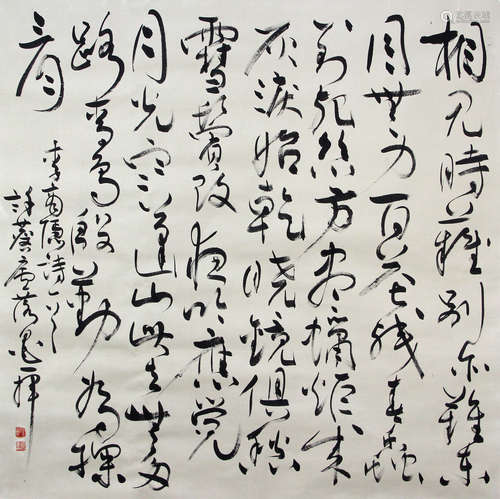 相見時難別亦難東
風無力百花殘春蠶
到死絲方盡蠟炬成
灰淚始乾曉鏡但愁
雲鬢改夜吟應覺
月光寒蓬山此去無多
路青鳥殷勤為探
看
李商隱詩